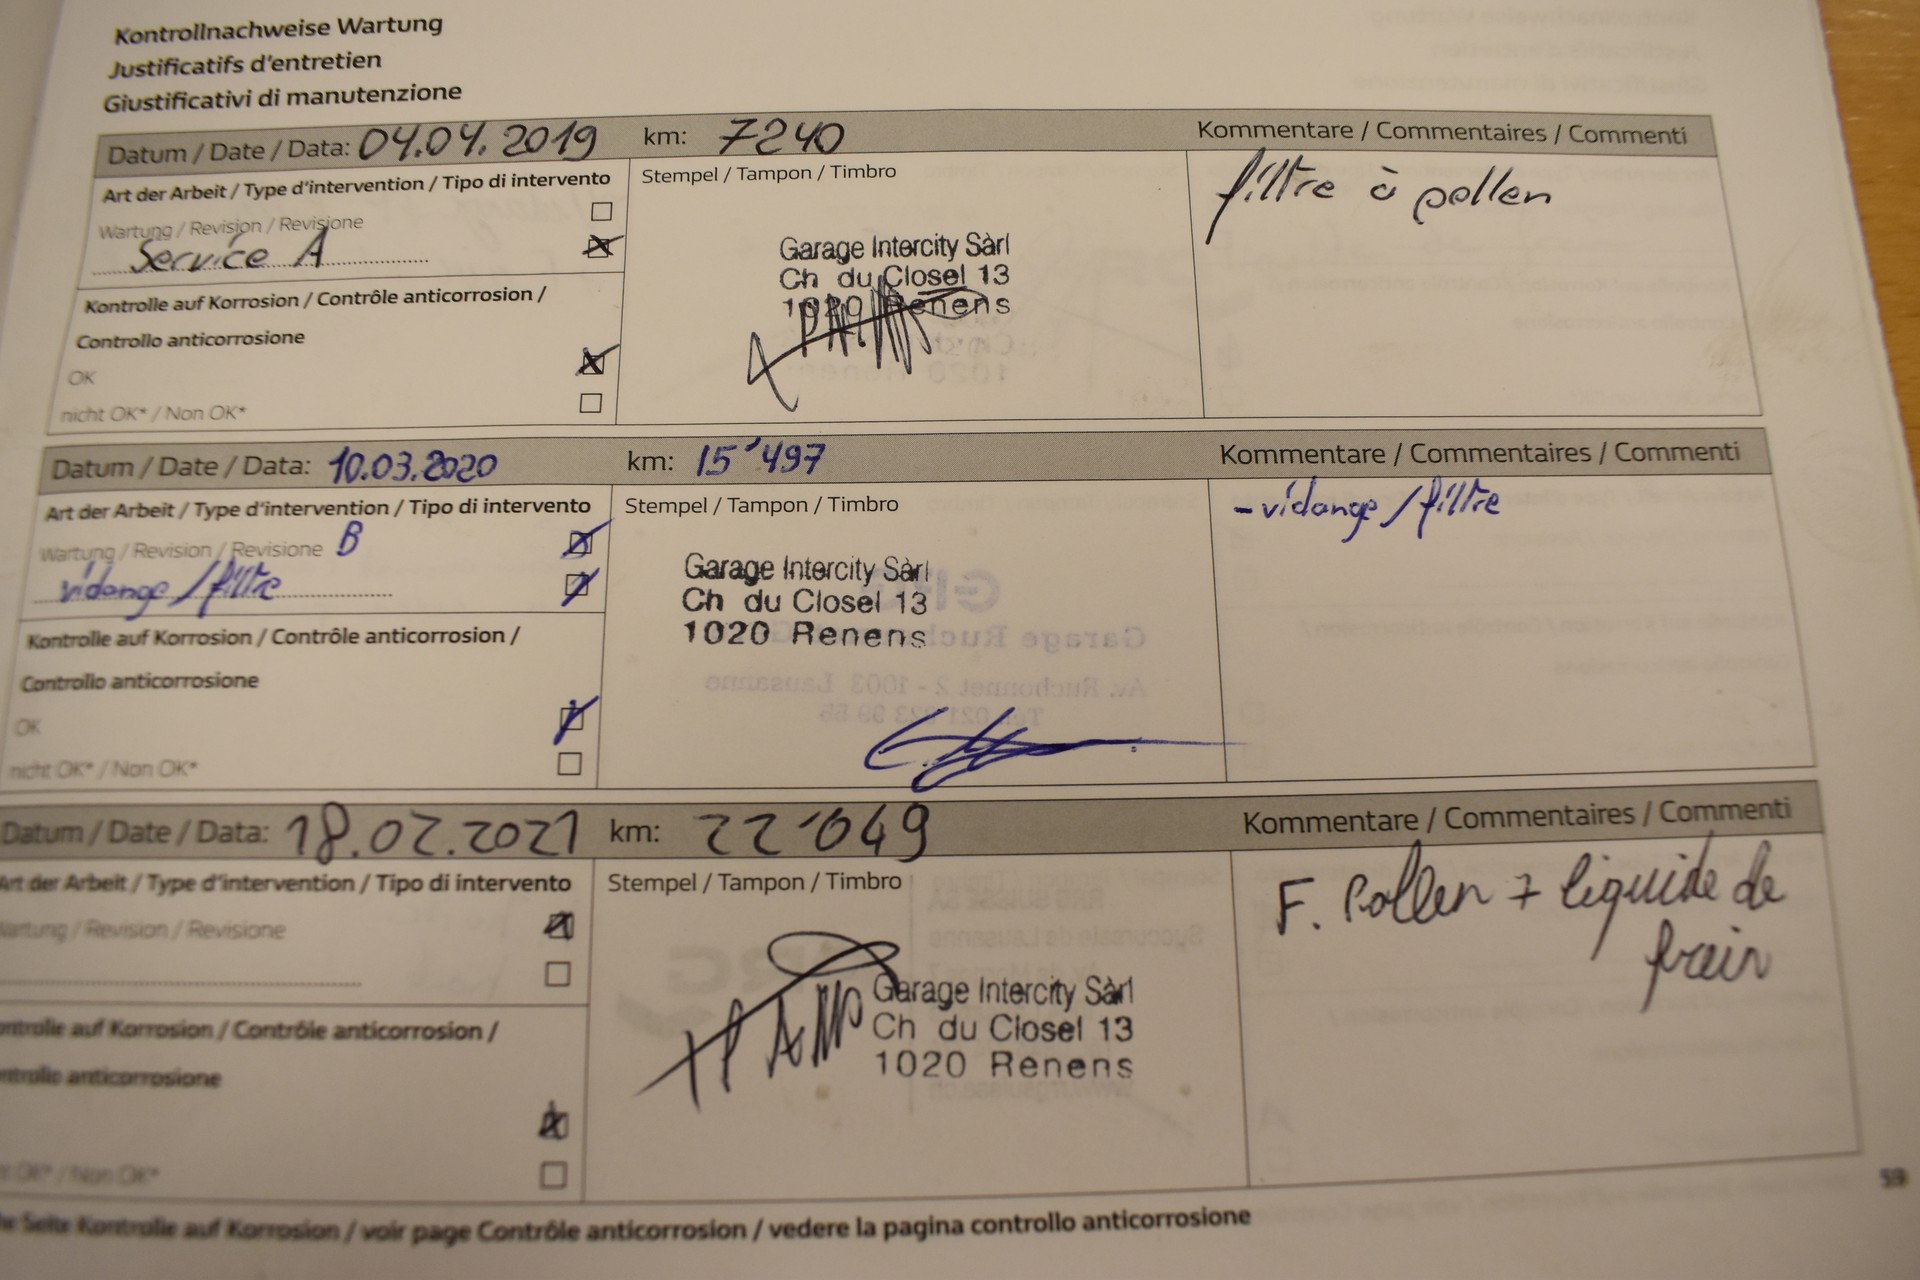 Kontrollnachweise Wartung
Justificatifs d'entretien
Giustificativi di manutenzione
Datum / Date / Data: 04.04.2019 km: 7240 Kommentare / Commentaires / Commenti
Art der Arbeit / Type d'intervention / Tipo di intervento
Stempel / Tampon / Timbro
filtre à pollen
Wartung / Revision / Revisione
Service A
Garage Intercity Sàrl
Ch du Closel 13
1020 Renens
Kontrolle auf Korrosion / Contrôle anticorrosion /
Controllo anticorrosione
OK
nicht OK* / Non OK*
Datum / Date / Data: 10.03.2020 km: 15'497 Kommentare / Commentaires / Commenti
Art der Arbeit / Type d'intervention / Tipo di intervento
Stempel / Tampon / Timbro
- vidange / filtre
Wartung / Revision / Revisione B
vidange / filtre
Garage Intercity Sàrl
Ch du Closel 13
1020 Renens
Kontrolle auf Korrosion / Contrôle anticorrosion /
Controllo anticorrosione
OK
nicht OK* / Non OK*
Datum / Date / Data: 18.02.2021 km: 22'049 Kommentare / Commentaires / Commenti
Art der Arbeit / Type d'intervention / Tipo di intervento
Stempel / Tampon / Timbro
F. Pollen + liquide de
frein
Wartung / Revision / Revisione
Garage Intercity Sàrl
Ch du Closel 13
1020 Renens
Kontrolle auf Korrosion / Contrôle anticorrosion /
anticorrosione
OK* / Non OK*
59
Seite Kontrolle auf Korrosion / voir page Contrôle anticorrosion / vedere la pagina controllo anticorrosione